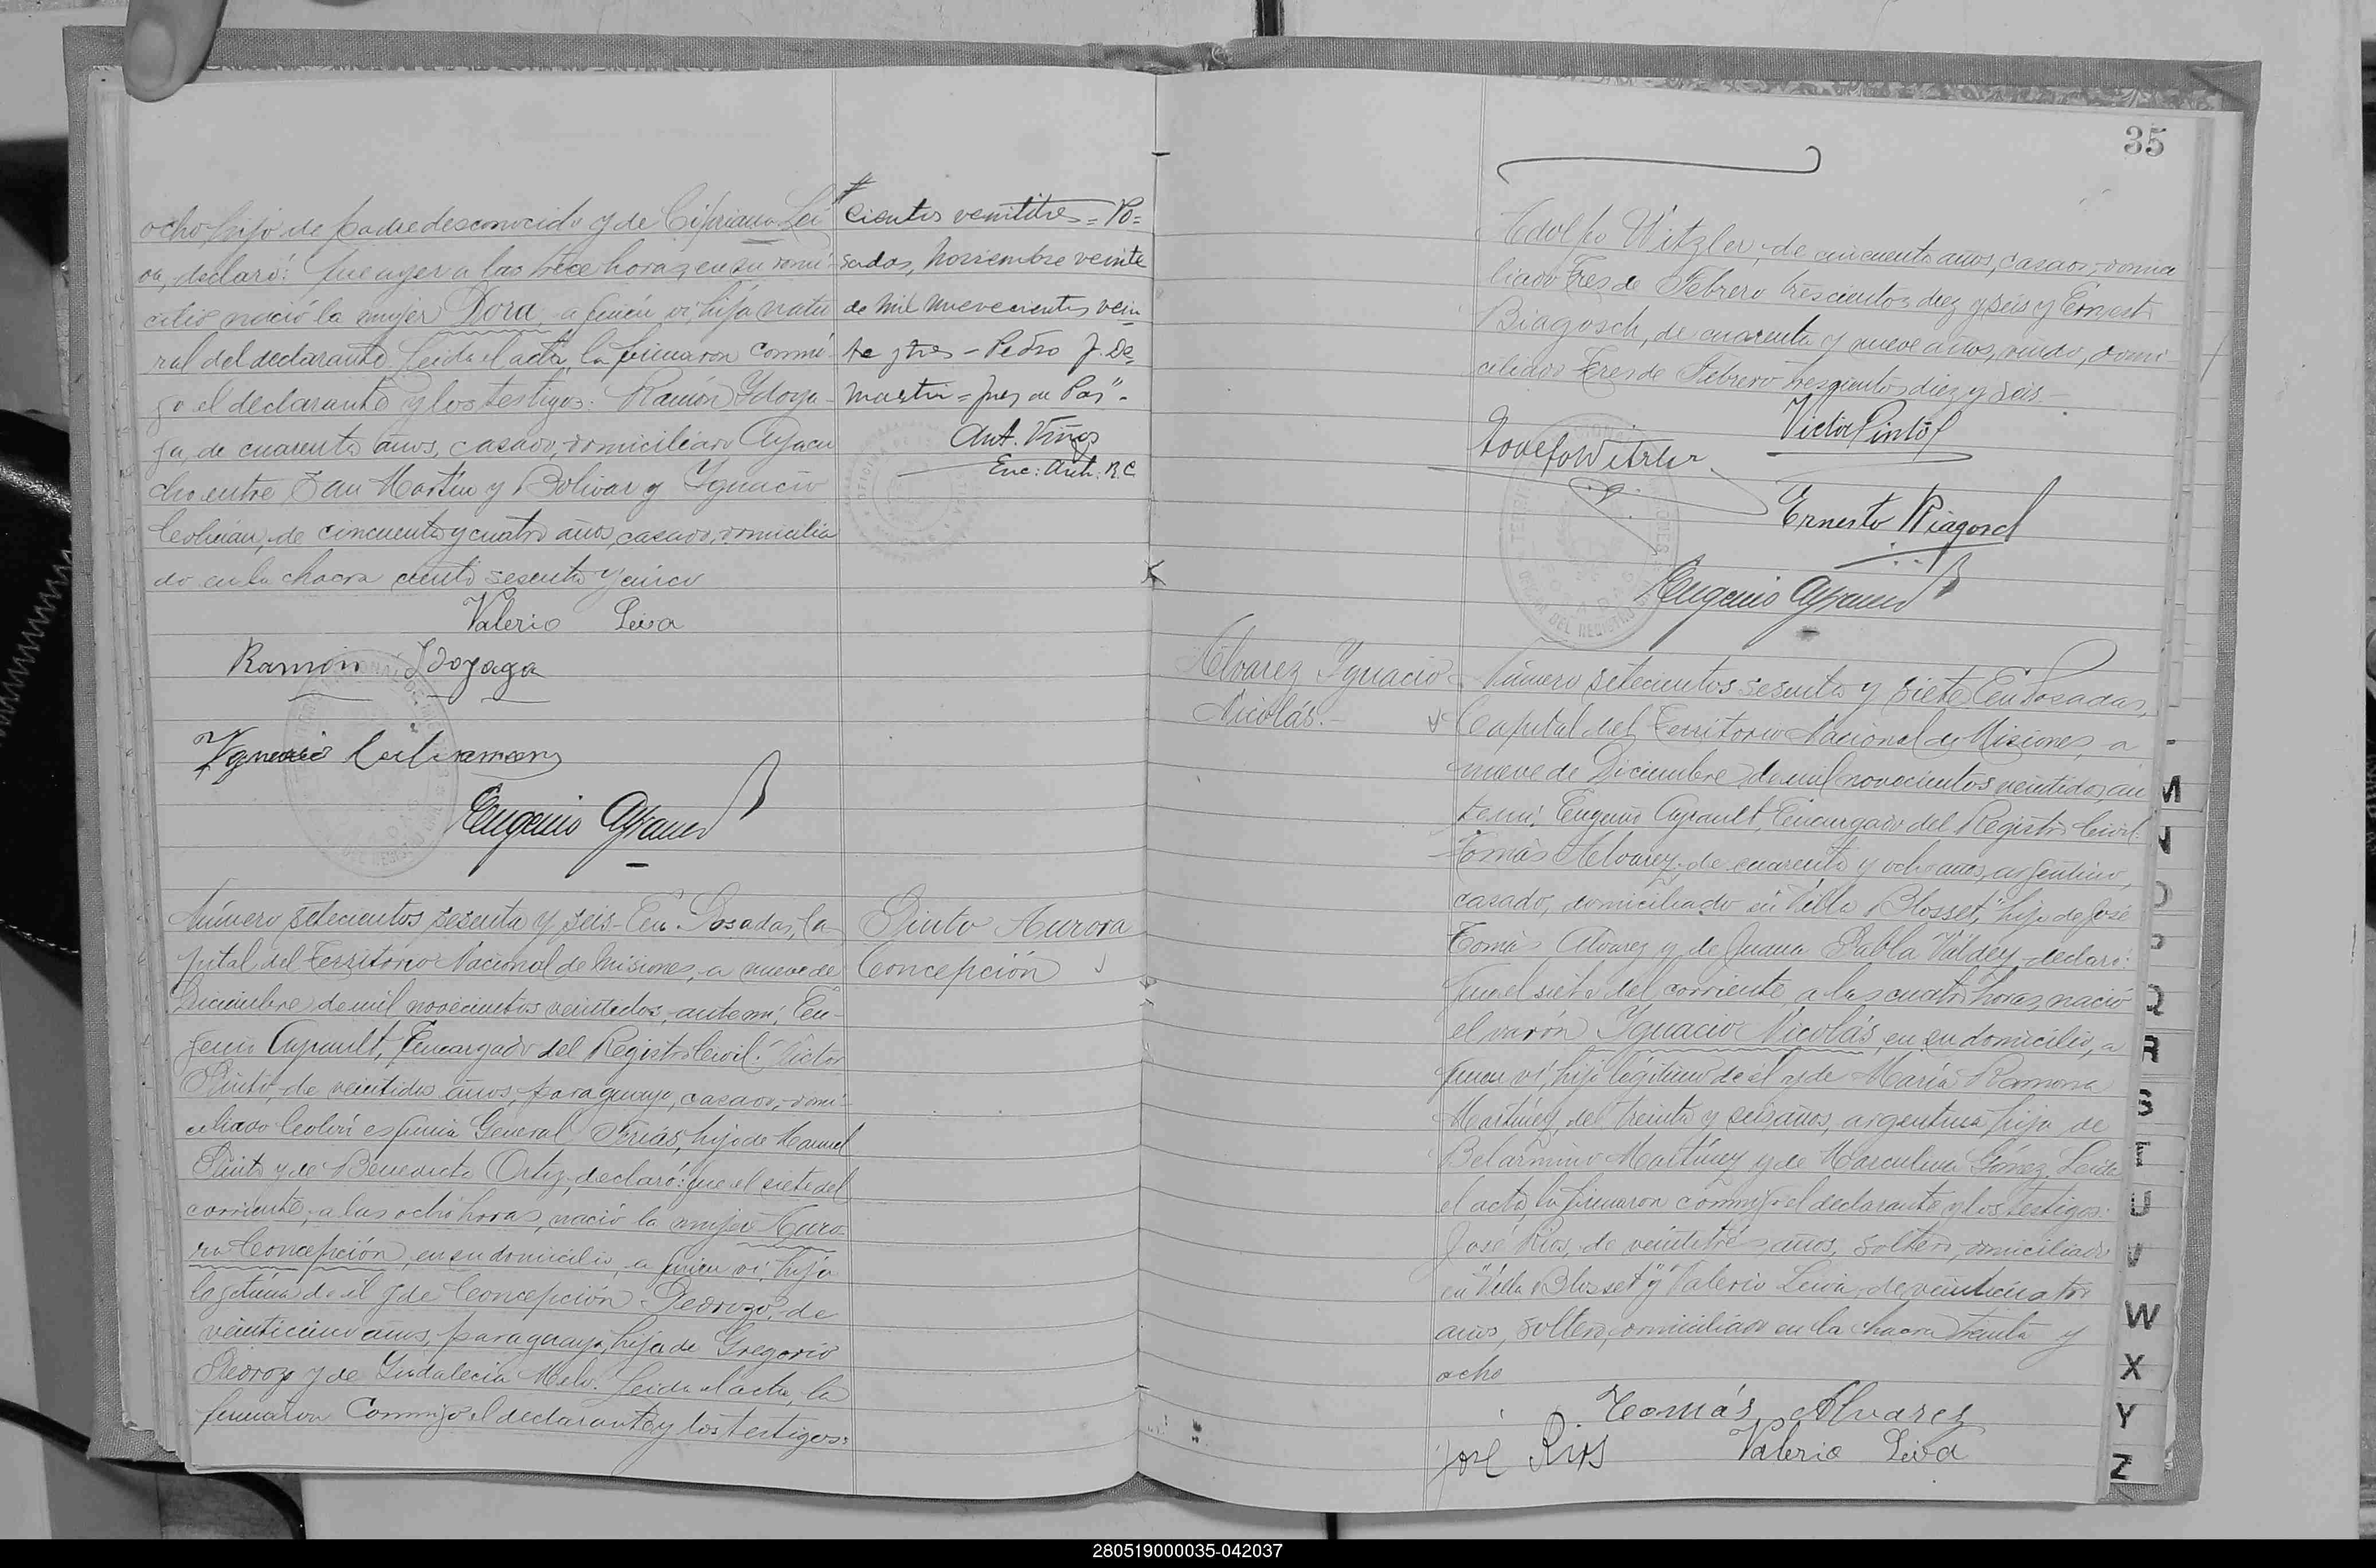 ocho, hijo de padre desconocido y de Cipriana Lei
va, declaró: que ayer a las trece horas, en su domi-
cilio nació la mujer Dora, a quien vi, hija natu
ral del declarante. Leida el acta, la firmaron conmi-
go el declarante y los testigos: Ramón Ydoya-
ga, de cuarenta años, casado, domiciliado Ayacu
cho entre San Martín y Bolivar y Ygnacio
de cincuenta y cuatro años, casado, domicilia
do en la chacra ciento sesenta y cinco
Valerio Leiva
Ramón Ydoyaga
Ygnacio
Eugenio Ayrault
cientos veintitres = Po=
sadas, Noviembre veinte
de mil novecientos vein
te y tres = Pedro J. De
Martin = Juez de Paz" -
Ant. Viñas
Enc: Arch: R.C
Número setecientos sesenta y seis - En Posadas, Ca-
pital del Territorio Nacional de Misiones, a nueve de
Diciembre de mil novecientos veintidos, ante mí, Eu-
genio Ayrault, Encargado del Registro Civil: Victor
Pinto, de veintidos años, paraguayo, casado, domi-
ciliado Colón esquina General Frías, hijo de Manuel
Pinto y de Benedicta Ortiz, declaró: que el siete del
corriente, a las ocho horas, nació la mujer Auro-
ra Concepción, en su domicilio, a quien vi, hija
legítima de él y de Concepción Pedrozo, de
veinticinco años, paraguaya, hija de Gregorio
Pedrozo y de Yndalecia Melo. Leida el acta, la
firmaron conmigo el declarante y los testigos:
Pinto Aurora
Concepción
35
Adolfo Witzler, de cincuenta años, casado, domici
liado Tres de Febrero trescientos diez y seis y Ernesto
Biagosch, de cuarenta y nueve años, viudo, domi-
ciliado Tres de Febrero trescientos diez y seis -
Victor Pinto
Adolfo Witzler
Ernesto Biagosch
Eugenio Ayrault
Alvarez Ygnacio
Nicolás.-
Número setecientos sesenta y siete. En Posadas,
Capital del Territorio Nacional de Misiones, a
nueve de Diciembre de mil novecientos veintidos, an
te mí, Eugenio Ayrault, Encargado del Registro Civil:
Tomás Alvarez, de cuarenta y ocho años, argentino,
casado, domiciliado en "Villa Blosset," hijo de José
Tomás Alvarez y de Juana Pabla Váldez, declaró:
que el siete del corriente a las cuatro horas, nació
el varón Ygnacio Nicolás, en su domicilio, a
quien vi, hijo legítimo de él y de María Ramona
Martínez, de treinta y seis años, argentina, hija de
Belarmino Martínez y de Marculina Gómez. Leida
el acta, la firmaron conmigo el declarante y los testigos:
José Rios, de veintitrés años, soltero, domiciliado
en "Villa Blosset" y Valerio Leiva, de veinticuatro
años, soltero, domiciliado en la chacra treinta y
ocho
Tomás Alvarez
José Rios Valerio Leiva
M
N
O
P
Q
R
S
T
U
V
W
X
Y
Z
280519000035-042037